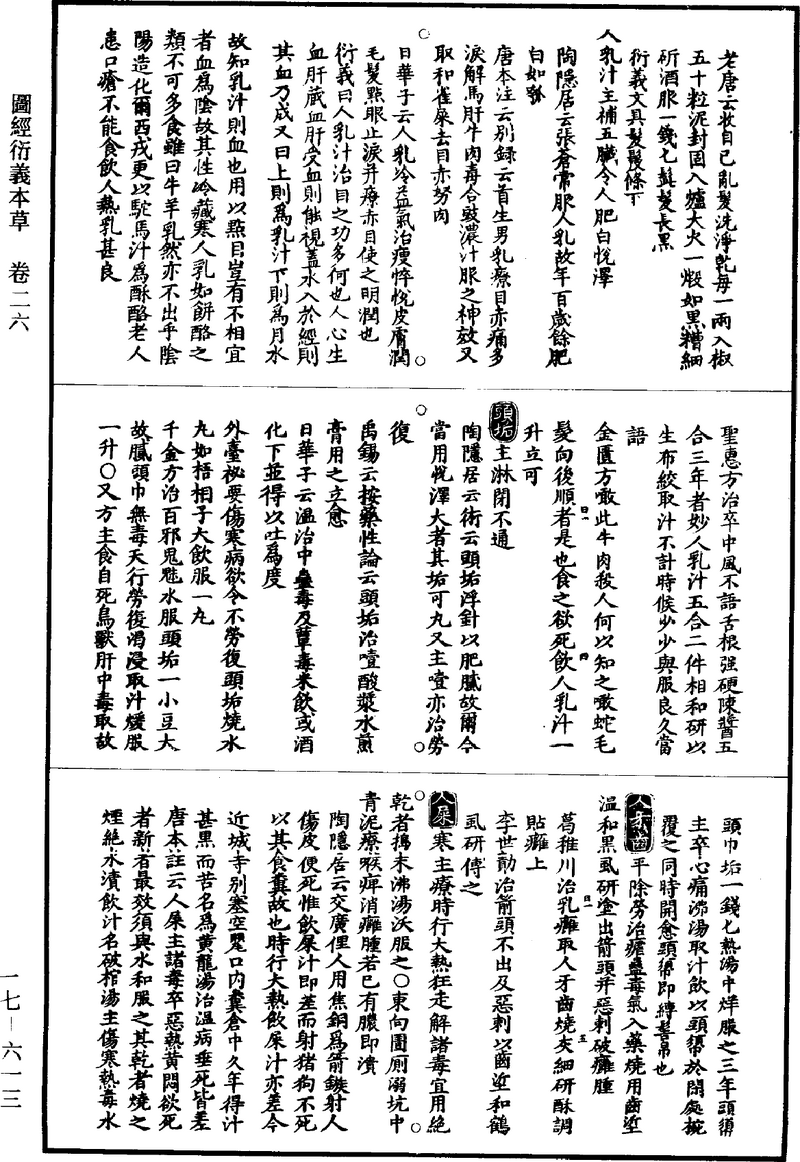 圖經衍義本草　卷二六
老唐云收自己亂髮洗淨乾每一兩入椒
五十粒泥封固入爐大火一煅如黑糟細
研酒服一錢匕髭髮長黑
衍義文具髮髲條下
人乳汁主補五臟令人肥白悅澤
陶隱居云張蒼常服人乳故年百歲餘肥
白如瓠
唐本注云別錄云首生男乳療目赤痛多
淚解馬肝牛肉毒合豉濃汁服之神效又
取和雀屎去目赤努肉
日華子云人乳冷益氣治瘦悴悅皮膚潤
毛髮點眼止淚并療赤目使之明潤也
衍義曰人乳汁治目之功多何也人心生
血肝藏血肝受血則能視蓋水入於經則
其血乃成又曰上則為乳汁下則為月水
故知乳汁則血也用以點目豈有不相宜
者血為陰故其性冷藏寒人乳如餅酪之
類不可多食雖曰牛羊乳然亦不出乎陰
陽造化爾西戎更以駝馬汁為酥酪老人
患口瘡不能食飲人熱乳甚良
聖惠方治卒中風不語舌根强硬陳醬五
合三年者妙人乳汁五合二件相和研以
生布絞取汁不計時候少少與服良久當
語
金匱方噉此牛肉殺人何以知之噉蛇毛
髮向後順者是也食之欲死飲人乳汁一
升立可
頭垢主淋閉不通
陶隱居云術云頭垢浮針以肥膩故爾今
當用悅澤大者其垢可丸又主噎亦治勞
復
禹錫云按藥性論云頭垢治噎酸漿水煎
膏用之立愈
日華子云溫治中蠱毒及蕈毒米飲或酒
化下並得以吐為度
外臺祕要傷寒病欲令不勞復頭垢燒水
丸如梧桐子大飲服一丸
千金方治百邪鬼魅水服頭垢一小豆大
故膩頭巾無毒天行勞復渴浸取汁煖服
一升○又方主食自死鳥獸肝中毒取故
頭巾垢一錢匕熱湯中烊服之三年頭㡋
主卒心痛沸湯取汁飲以頭㡋於閉處掩
覆之同時開愈頭㡋即縛髻帛也
人牙齒平除勞治瘧蠱毒氣入藥燒用齒垽
溫和黑虱研塗出箭頭并惡刺破癰腫
葛稚川治乳癰取人牙齒燒灰細研酥調
貼癰上
李世勣治箭頭不出及惡刺以齒垽和鶴
虱研傅之
人屎寒主療時行大熱狂走解諸毒宜用絕
乾者搗末沸湯沃服之○東向圊廁溺坑中
青泥療喉痺消癰腫若已有膿即潰
陶隱居云交廣俚人用焦銅為箭鏃射人
傷皮便死惟飲屎汁即差而射猪狗不死
以其食糞故也時行大熱飲屎汁亦差今
近城寺別塞空甖口內糞倉中久年得汁
甚黑而苦名為黃龍湯治溫病垂死皆差
唐本註云人屎主諸毒卒惡熱黃悶欲死
者新者最效須與水和服之其乾者燒之
煙絕水漬飲汁名破棺湯主傷寒熱毒水
一七－六一三